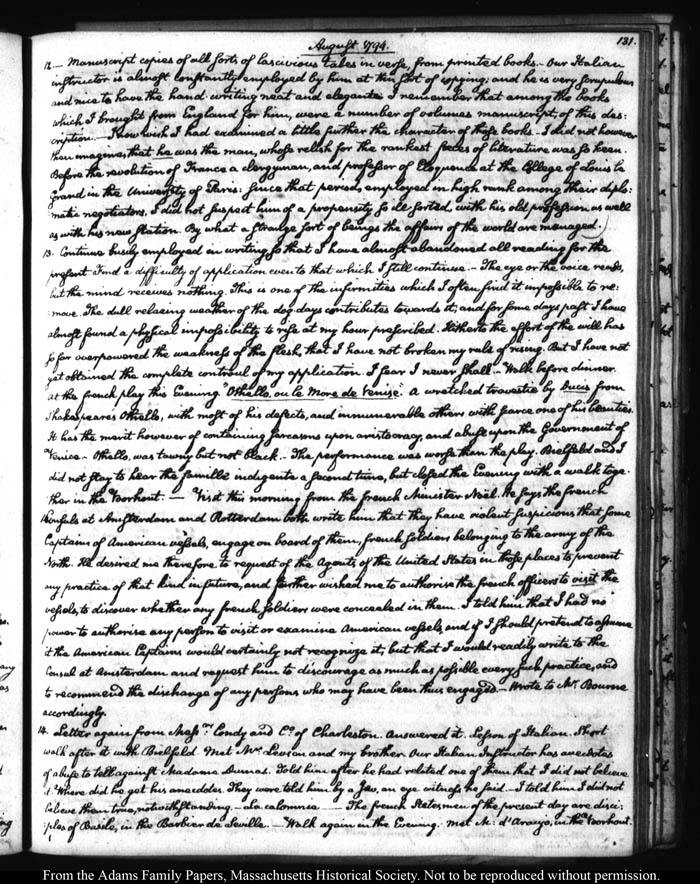 August 1794.
131.
12.— Manuscript copies of all sorts of lascivious tales in verse, from printed books.— Our Italian
instructor is almost constantly employed by him at this sort of copying; and he is very scrupulous
and nice to have the hand-writing neat and elegant. I remember that among the books
which I brought from England for him, were a number of volumes manuscript, of this des:
cription.— I now wish I had examined a little further the character of those books. I did not however
then imagine, that he was the man, whose relish for the rankest feces of literature was so keen.
Before the revolution of France a clergyman, and professor of Eloquence at the College of Louis le
Grand in the University of Paris: since that period, employed in high rank among their diplo:
matic negotiators, I did not suspect him of a propensity so ill sorted, with his old profession as well
as with his new station. By what a strange sort of beings the affairs of the world are managed.
13. Continue busily employed in writing so that I have almost abandoned all reading for the
present. Find a difficulty of application even to that which I still continue.— The eye or the voice reads,
but the mind receives nothing. This is one of the infirmities which I often find it impossible to re:
move. The dull relaxing weather of the dog-days contributes towards it, and for some days past I have
almost found a physical impossibility to rise at my hour prescribed. Hitherto the effort of the will has
so far overpowered the weakness of the flesh, that I have not broken my rule of rising. But I have not
yet obtained the complete controul of my application. I fear I never shall.— Walk before dinner.
At the french play this Evening. "Othello, ou le More de Venise." A wretched travestie by Ducis from
Shakespeare's Othello, with most of his defects, and innumerable others with scarce one of his beauties.
It has the merit however of containing sarcasms upon aristocracy, and abuse upon the Government of
Venice.— Othello, was tawny but not black.— The performance was worse than the play. Bielfeld and I
did not stay to hear the famille indigente a second time, but closed the Evening with a walk toge:
ther in the Voorhout.— Visit this morning from the french Minister Noël. He says the french
Consuls at Amsterdam and Rotterdam both write him that they have violent suspicions that some
Captains of American vessels, engage on board of them, french soldiers belonging to the army of the
North. He desired me therefore, to request of the Agents of the United States in those places to prevent
any practice of that kind in future, and further wished me to authorise the french officers to visit the
vessels, to discover whether any french soldiers were concealed in them. I told him that I had no
power to authorise any person to visit or examine American vessels, and if I should pretend to assume
it the American Captains would certainly not recognize it, but that I would readily write to the
Consul at Amsterdam and request him to discourage as much as possible every such practice, and
to recommend the discharge of any persons who may have been thus engaged.— Wrote to Mr. Bourne
accordingly.
14. Letter again from Messrs. Condy and Co. of Charleston. Answered it. Lesson of Italian. Short
walk after it with Bielfeld. Met Mr. and my brother. Our Italian Instructor has anecdotes
of abuse to tell against Madame Dumas. Told him after he had related one of them that I did not believe
it. Where did he get his anecdotes. They were told him by a Jew, an eye witness he said.— I told him I did not
believe them true, notwithstanding.— ala calomnie.— The french Statesmen of the present day are disci:
ples of Basile, in the Barbier de Seville.— Walk again in the Evening. Met Mr: d'Araujo, in the Voorhout.
From the Adams Family Papers, Massachusetts Historical Society. Not to be reproduced without permission.